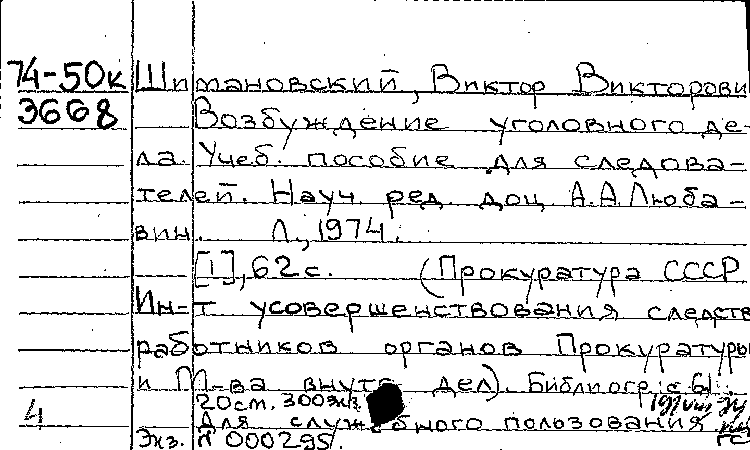 74-50к Шимановский, Виктор Викторови
3668 Возбуждение уголовного де-
ла. Учеб. пособие для следова-
телей. Науч. ред. доц. А.А. Люба-
вин. Л., 1974.
[1], 62 с. (Прокуратура СССР
Ин-т усовершенствования следств
работников органов Прокуратуры
и М-ва внутр дел). Библиогр: с 61
20 см. 300 экз.
4 Для служебного пользования
Экз. № 000295.